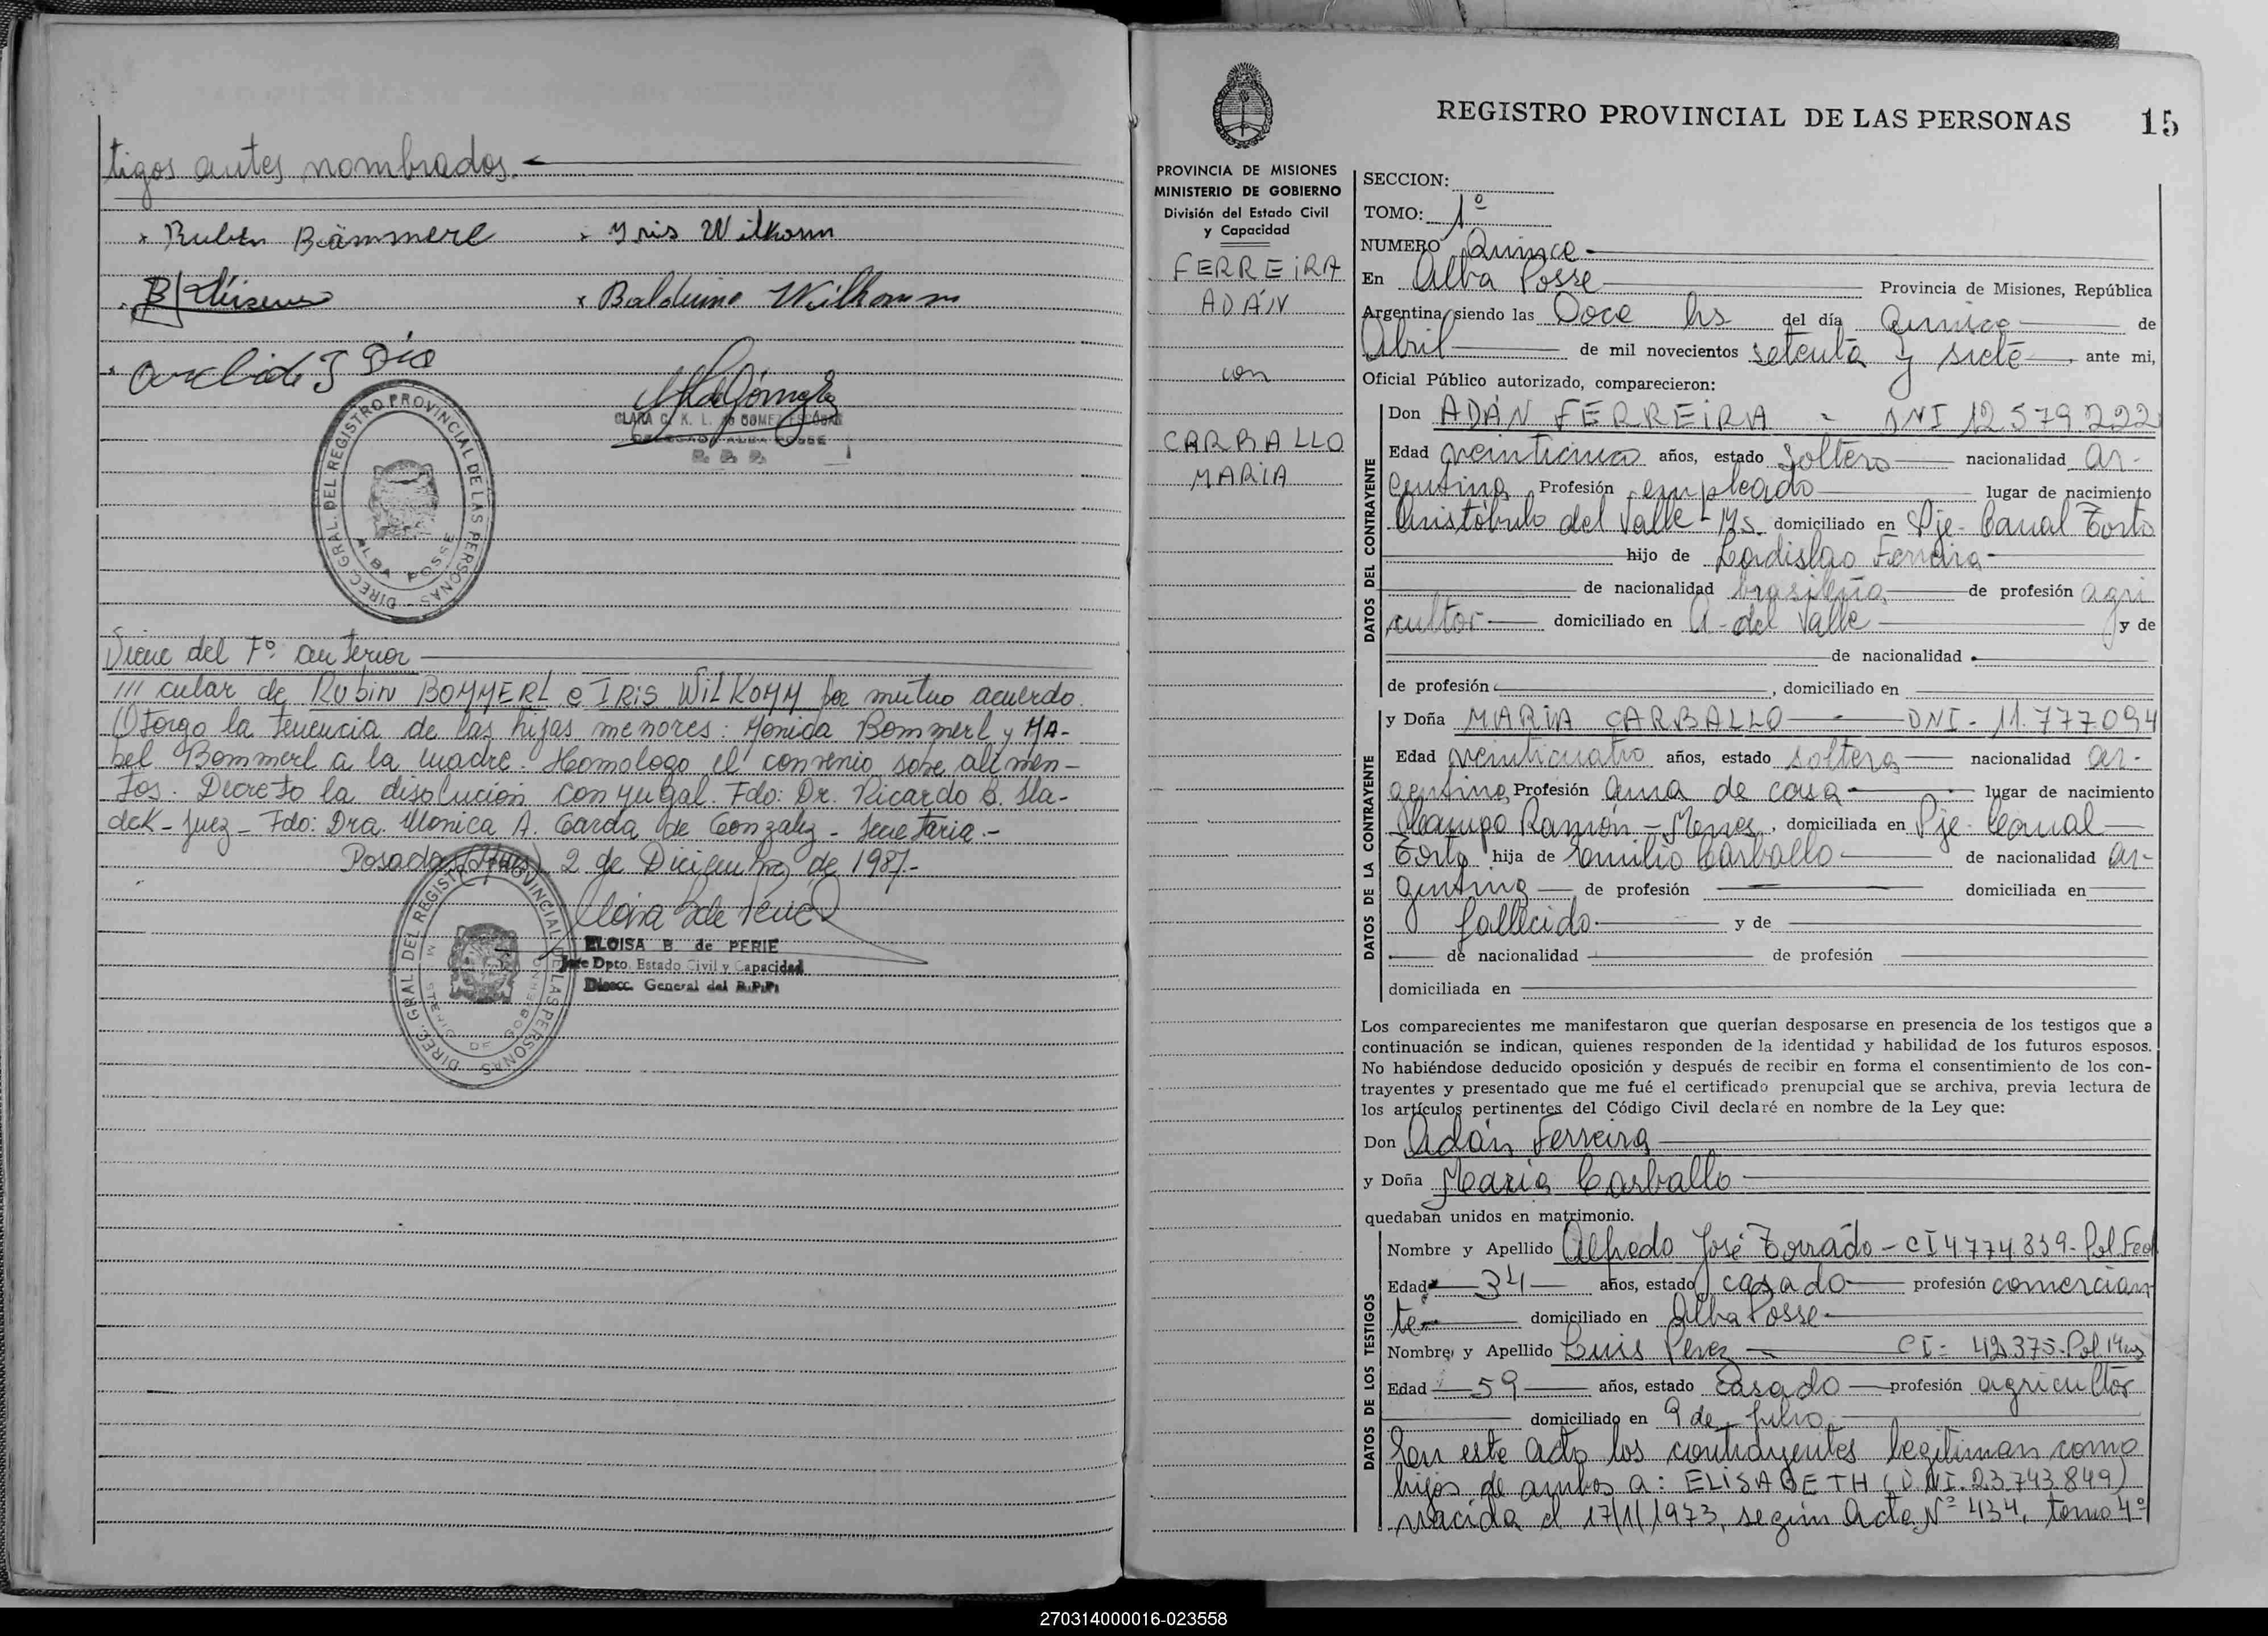 tigos antes nombrados.
x Rubén Bömmerl x Iris Wilkomm
x Balduino Wilkomm
DIREC. GRAL. DEL REGISTRO PROVINCIAL DE LAS PERSONAS
ALBA POSSE
CLARA C. K. L. de GOMEZ ESCOBAR
DELEGAD. ALBA POSSE
R. P. P.
Viene del Fº anterior
/// cular de RUBIN BOMMERL e IRIS WILKOMM por mutuo acuerdo.
Otorgo la tenencia de las hijas menores: Monica Bommerl y MA-
bel Bommerl a la madre. Homologo el convenio sobe alimen-
tos. Decreto la disolución conyugal. Fdo: Dr. Ricardo B. Sla-
dek - Juez - Fdo: Dra. Monica A. Garda de Gonzalez - Secretaria.-
Posadas (Mnes) 2 de Diciembre de 1987.-
DIREC. GRAL. DEL REGISTRO PROVINCIAL DE LAS PERSONAS
MINISTERIO DE GOBIERNO
ELOISA B. de PERIE
Jefe Dpto. Estado Civil y Capacidad
Direcc. General del R.P.P.
PROVINCIA DE MISIONES
MINISTERIO DE GOBIERNO
División del Estado Civil
y Capacidad
FERREIRA
ADÁN
con
CARBALLO
MARIA
REGISTRO PROVINCIAL DE LAS PERSONAS 15
SECCION:
TOMO: 1º
NUMERO Quince
En Alba Posse Provincia de Misiones, República
Argentina, siendo las Doce hs del día Quince de
Abril de mil novecientos setenta y siete, ante mi,
Oficial Público autorizado, comparecieron:
DATOS DEL CONTRAYENTE
Don ADÁN FERREIRA - DNI 12.579.222
Edad veinticinco años, estado Soltero nacionalidad ar-
gentina Profesión empleado lugar de nacimiento
Aristóbulo del Valle - Ms. domiciliado en Pje. Canal Torto
hijo de Ladislao Ferreira
de nacionalidad brasileña de profesión agri
cultor domiciliado en A. del Valle y de
de nacionalidad
de profesión , domiciliado en
DATOS DE LA CONTRAYENTE
y Doña MARIA CARBALLO - DNI - 11.777.094
Edad veinticuatro años, estado soltera nacionalidad ar-
gentina Profesión ama de casa lugar de nacimiento
Campo Ramón - Mnes, domiciliada en Pje. Canal
Torto hija de Carballo de nacionalidad ar-
gentina de profesión domiciliada en
fallecido y de
de nacionalidad de profesión
domiciliada en
Los comparecientes me manifestaron que querían desposarse en presencia de los testigos que a
continuación se indican, quienes responden de la identidad y habilidad de los futuros esposos.
No habiéndose deducido oposición y después de recibir en forma el consentimiento de los con-
trayentes y presentado que me fué el certificado prenupcial que se archiva, previa lectura de
los artículos pertinentes del Código Civil declaré en nombre de la Ley que:
Don Adán Ferreira
y Doña Maria Carballo
quedaban unidos en matrimonio.
DATOS DE LOS TESTIGOS
Nombre y Apellido Alfredo José Torrado - CI 4.774.839 - Pol. Fed
Edad 34 años, estado casado profesión comercian-
te domiciliado en Alba Posse
Nombre y Apellido Luis Perez CI - 42.375. Pol Mnes
Edad 59 años, estado Casado profesión agricultor
domiciliado en 9 de Julio
En este acto los contrayentes legitiman como
hijos de ambos a: ELISABETH (D.NI. 23.743.849)
nacida el 17/1/1973, según Acta Nº 434, tomo 4º
270314000016-023558